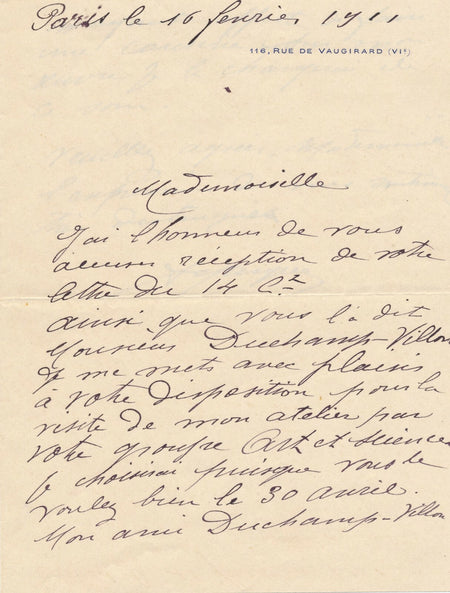 Paris le 16 fevrier 1911
116, RUE DE VAUGIRARD (VIᵉ)
Mademoiselle
J'ai l'honneur de vous
accuser réception de votre
lettre du 14 Ct
ainsi que vous l'a dit
Monsieur Duchamp-Villon
Je me mets avec plaisir
a votre disposition pour la
visite de mon atelier par
votre groupe Art et Science
Je choisirai puisque vous le
voulez bien le 30 avril.
Mon ami Duchamp-Villon